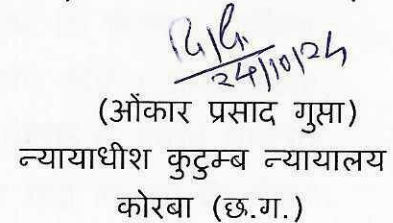 24/10/24
(ओंकार प्रसाद गुप्ता)
न्यायाधीश कुटुम्ब न्यायालय
कोरबा (छ.ग.)